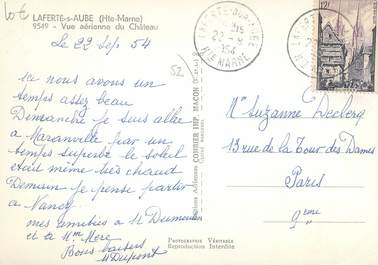 Lot
LAFERTE-s-AUBE (Hte-Marne)
9549 - Vue aérienne du Château
Le 22 Sep 54
52
ici nous avons un
temps assez beau
Dimanche je suis allé
a Maranville par un
temps superbe le soleil
était même très chaud
Demain je pense partir
a Nancy
mes amitiés a M Dumon
et a Mme Mère
Bons baisers
M Dupont
PHOTOGRAPHIE VÉRITABLE
Reproduction Interdite
COMBIER IMP. MACON
LAFERTE-SUR-AUBE
22 - 9
1954
HTE MARNE
12F
Mlle Suzanne Declerq
13 rue de la Tour des Dames
Paris
9ème